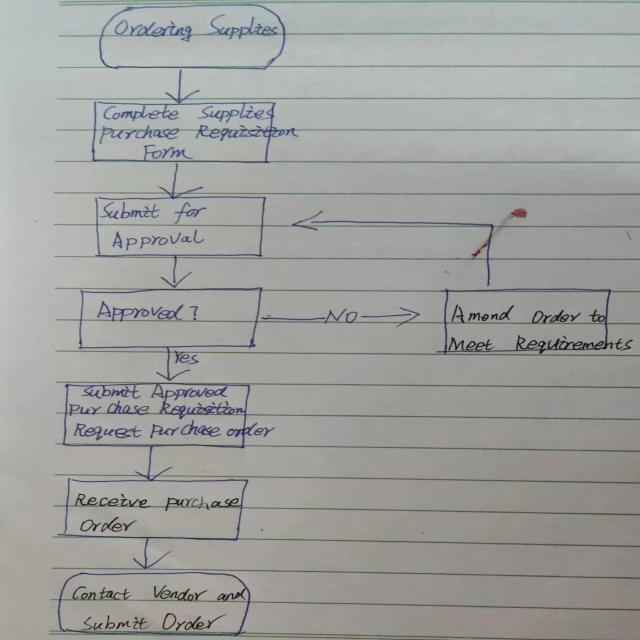 Ordering Supplies
Complete Supplies
Purchase Requisition
Form
Submit for
Approval
Approved?
NO
Amend Order to
Meet Requirements
Yes
Submit Approved
Purchase Requisition
Request purchase order
Receive purchase
Order
Contact Vendor and
Submit Order